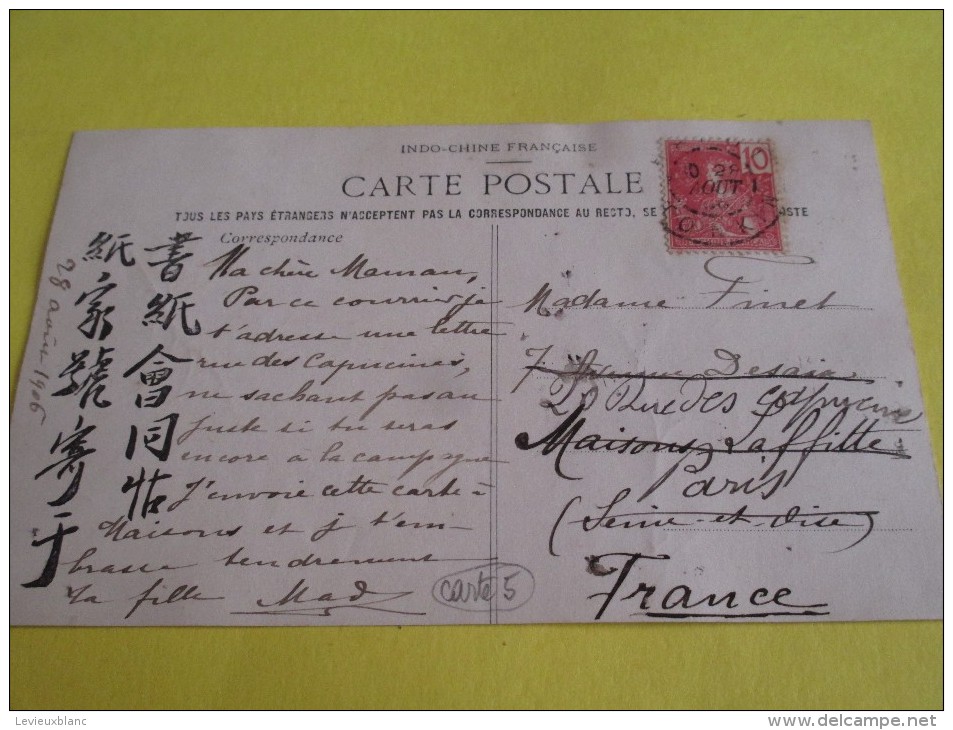 INDO-CHINE FRANÇAISE
CARTE POSTALE
TOUS LES PAYS ÉTRANGERS N'ACCEPTENT PAS LA CORRESPONDANCE AU RECTO, SE
Correspondance
10
AOUT
書紙會同帖
紙家號寄于
28 août 1906
Ma chère Maman,
Par ce courrier je
t'adresse une lettre
rue des Capucines,
ne sachant pas au
juste si tu seras
encore à la campagne
J'envoie cette carte à
Maisons et je t'em-
brasse tendrement
ta fille Mad
carte 5
Madame Finet
7 Avenue Desaix
20 Rue des Capucines
Maisons Laffitte
Paris
(Seine-et-Oise)
France
Levieuxblanc
http://www.delcampe.net